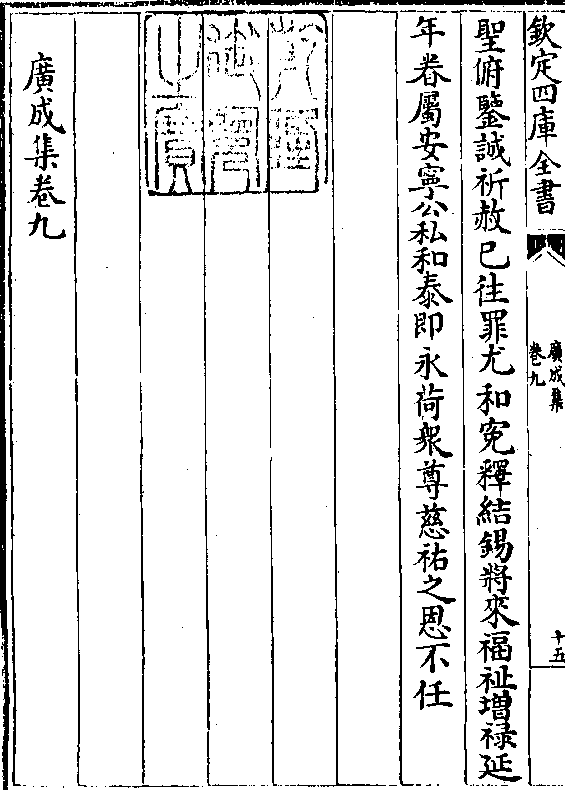 欽定四庫全書
廣成集
卷九
十五
聖俯鑒誠祈赦已往罪尤和寃釋結錫將來福祉增祿延
年眷屬安寧公私和泰即永荷衆尊慈祐之恩不任
廣成集卷九